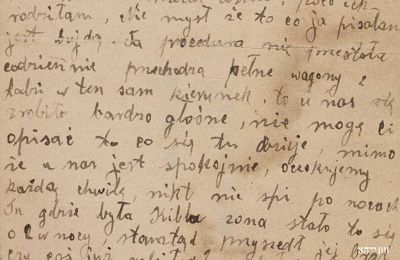 rodziłam, Nie myśl że to co ja pisałam
jest bujdą. Ta procedura nie przestała
codziennie przechodzą pełne wagony z
ludzi w ten sam kierunek, to u nas się
zrobiło bardzo głośne, nie mogę Ci
opisać to co się tu dzieje, mimo
że u nas jest spokojnie, oczekujemy
każdą chwilę, nikt nie śpi po nocach
Tu gdzie była Hibla żona stało to się
o 2 w nocy stamtąd przyszedł jej brat